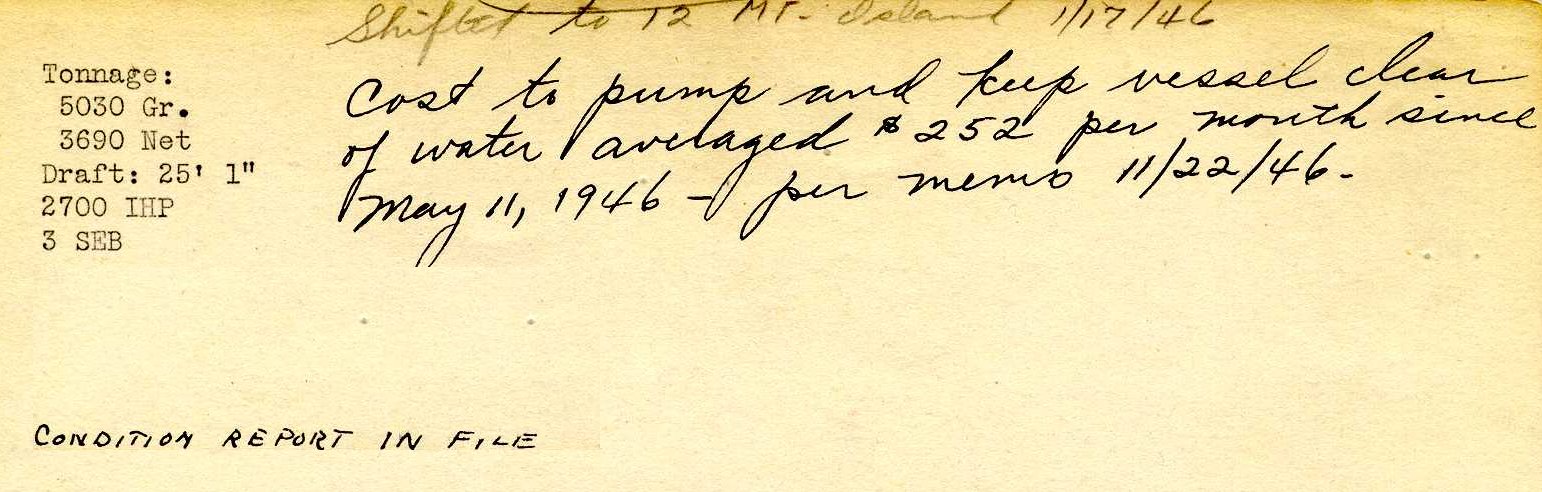 Shifted to 12 Mi. Island 1/17/46
Cost to pump and keep vessel clear
of water averaged $252 per month since
May 11, 1946 - per memo 11/22/46-
Tonnage:
5030 Gr.
3690 Net
Draft: 25' 1"
2700 IHP
3 SEB
CONDITION REPORT IN FILE